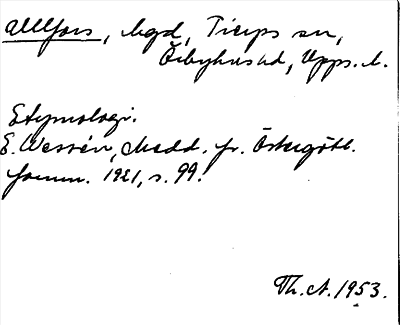 Allfors, bgd, Tierps sn,
Örbyhus hd, Upps. l.
Etymologi.
E. Wessén, Medd. fr. Östergötl.
fornm. 1921, s. 99.
Th. A. 1953.